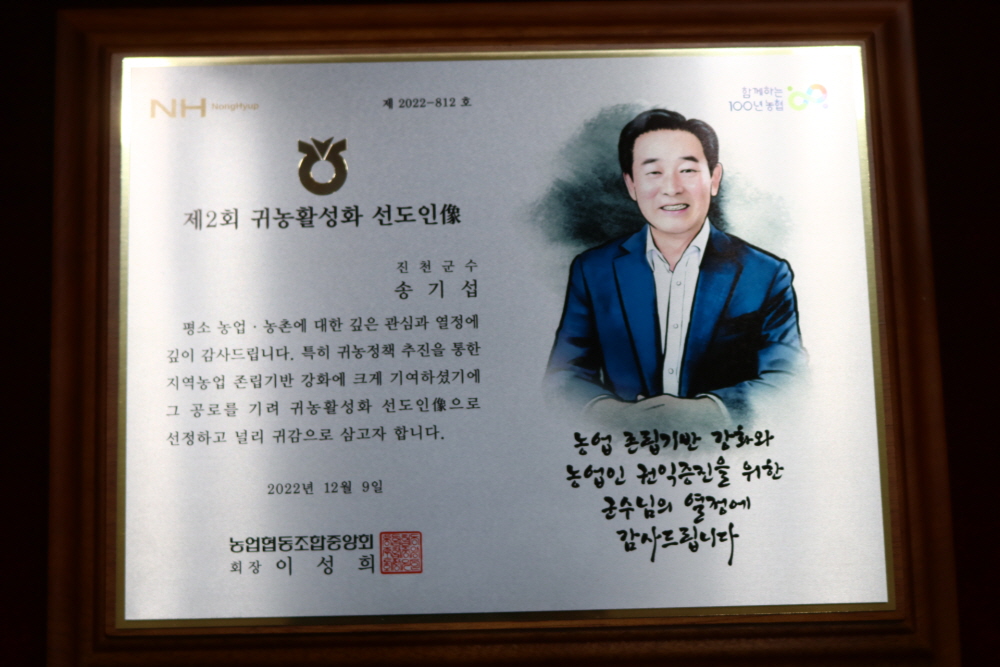 NH NongHyup
제 2022-812 호
함께하는
100년 농협
제2회 귀농활성화 선도인像
진천군수
송기섭
평소 농업·농촌에 대한 깊은 관심과 열정에
깊이 감사드립니다. 특히 귀농정책 추진을 통한
지역농업 존립기반 강화에 크게 기여하셨기에
그 공로를 기려 귀농활성화 선도인像으로
선정하고 널리 귀감으로 삼고자 합니다.
2022년 12월 9일
농업협동조합중앙회
회장 이성희
농업 존립기반 강화와
농업인 권익증진을 위한
군수님의 열정에
감사드립니다